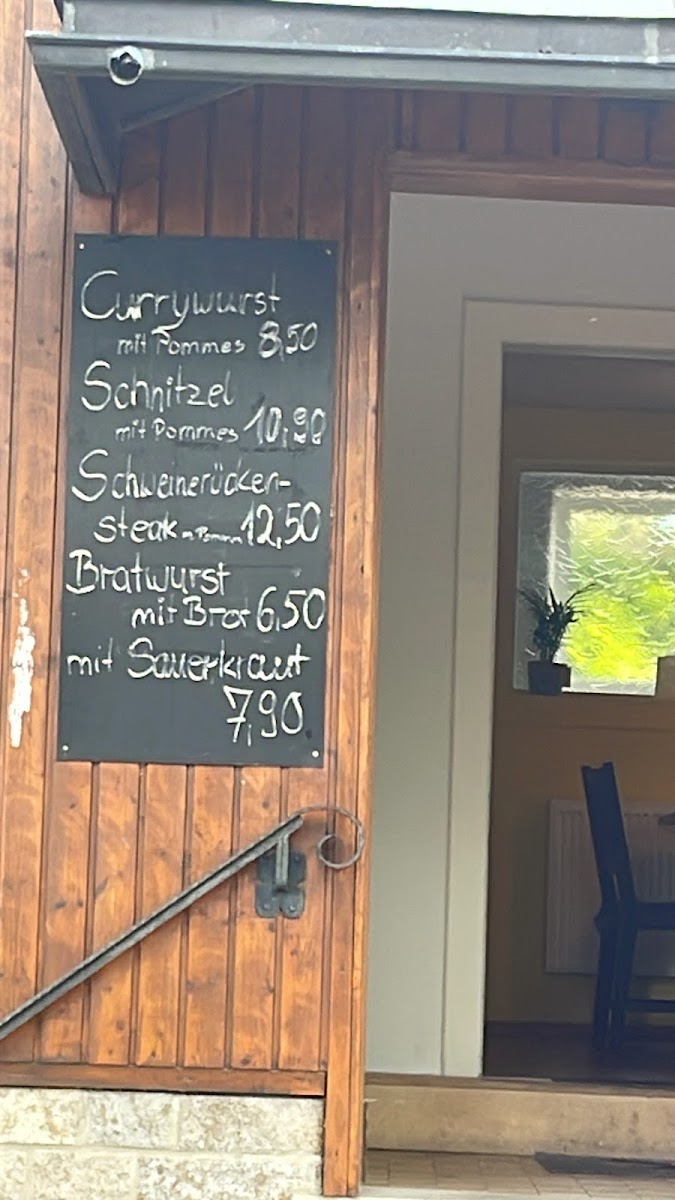 Currywurst
mit Pommes 8,50
Schnitzel
mit Pommes 10,90
Schweinerücken-
steak 12,50
Bratwurst
mit Brot 6,50
mit Sauerkraut
7,90